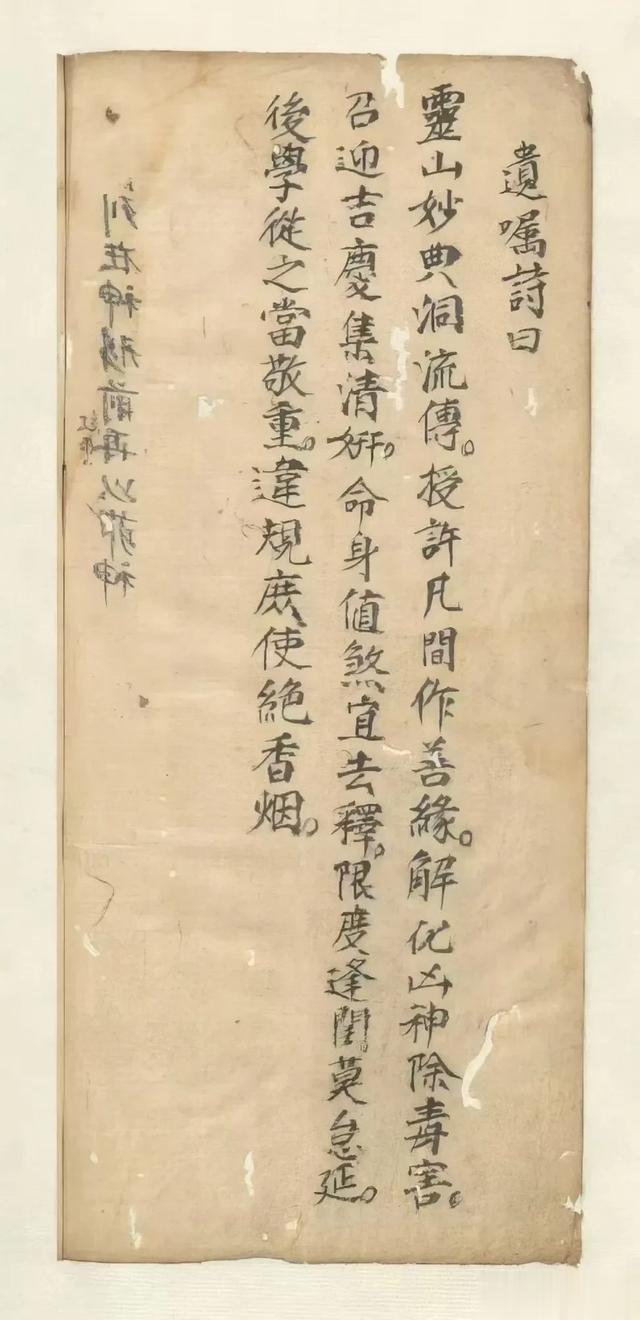 遺嘱詩曰
靈山妙典洞流傳。授許凡間作善緣。解化凶神除毒害。
召迎吉慶集清妍。命身值煞宜去釋。限度逢閏莫怠延。
後學從之當敬重。違規庶使絶香烟。
列在神 前再以 神